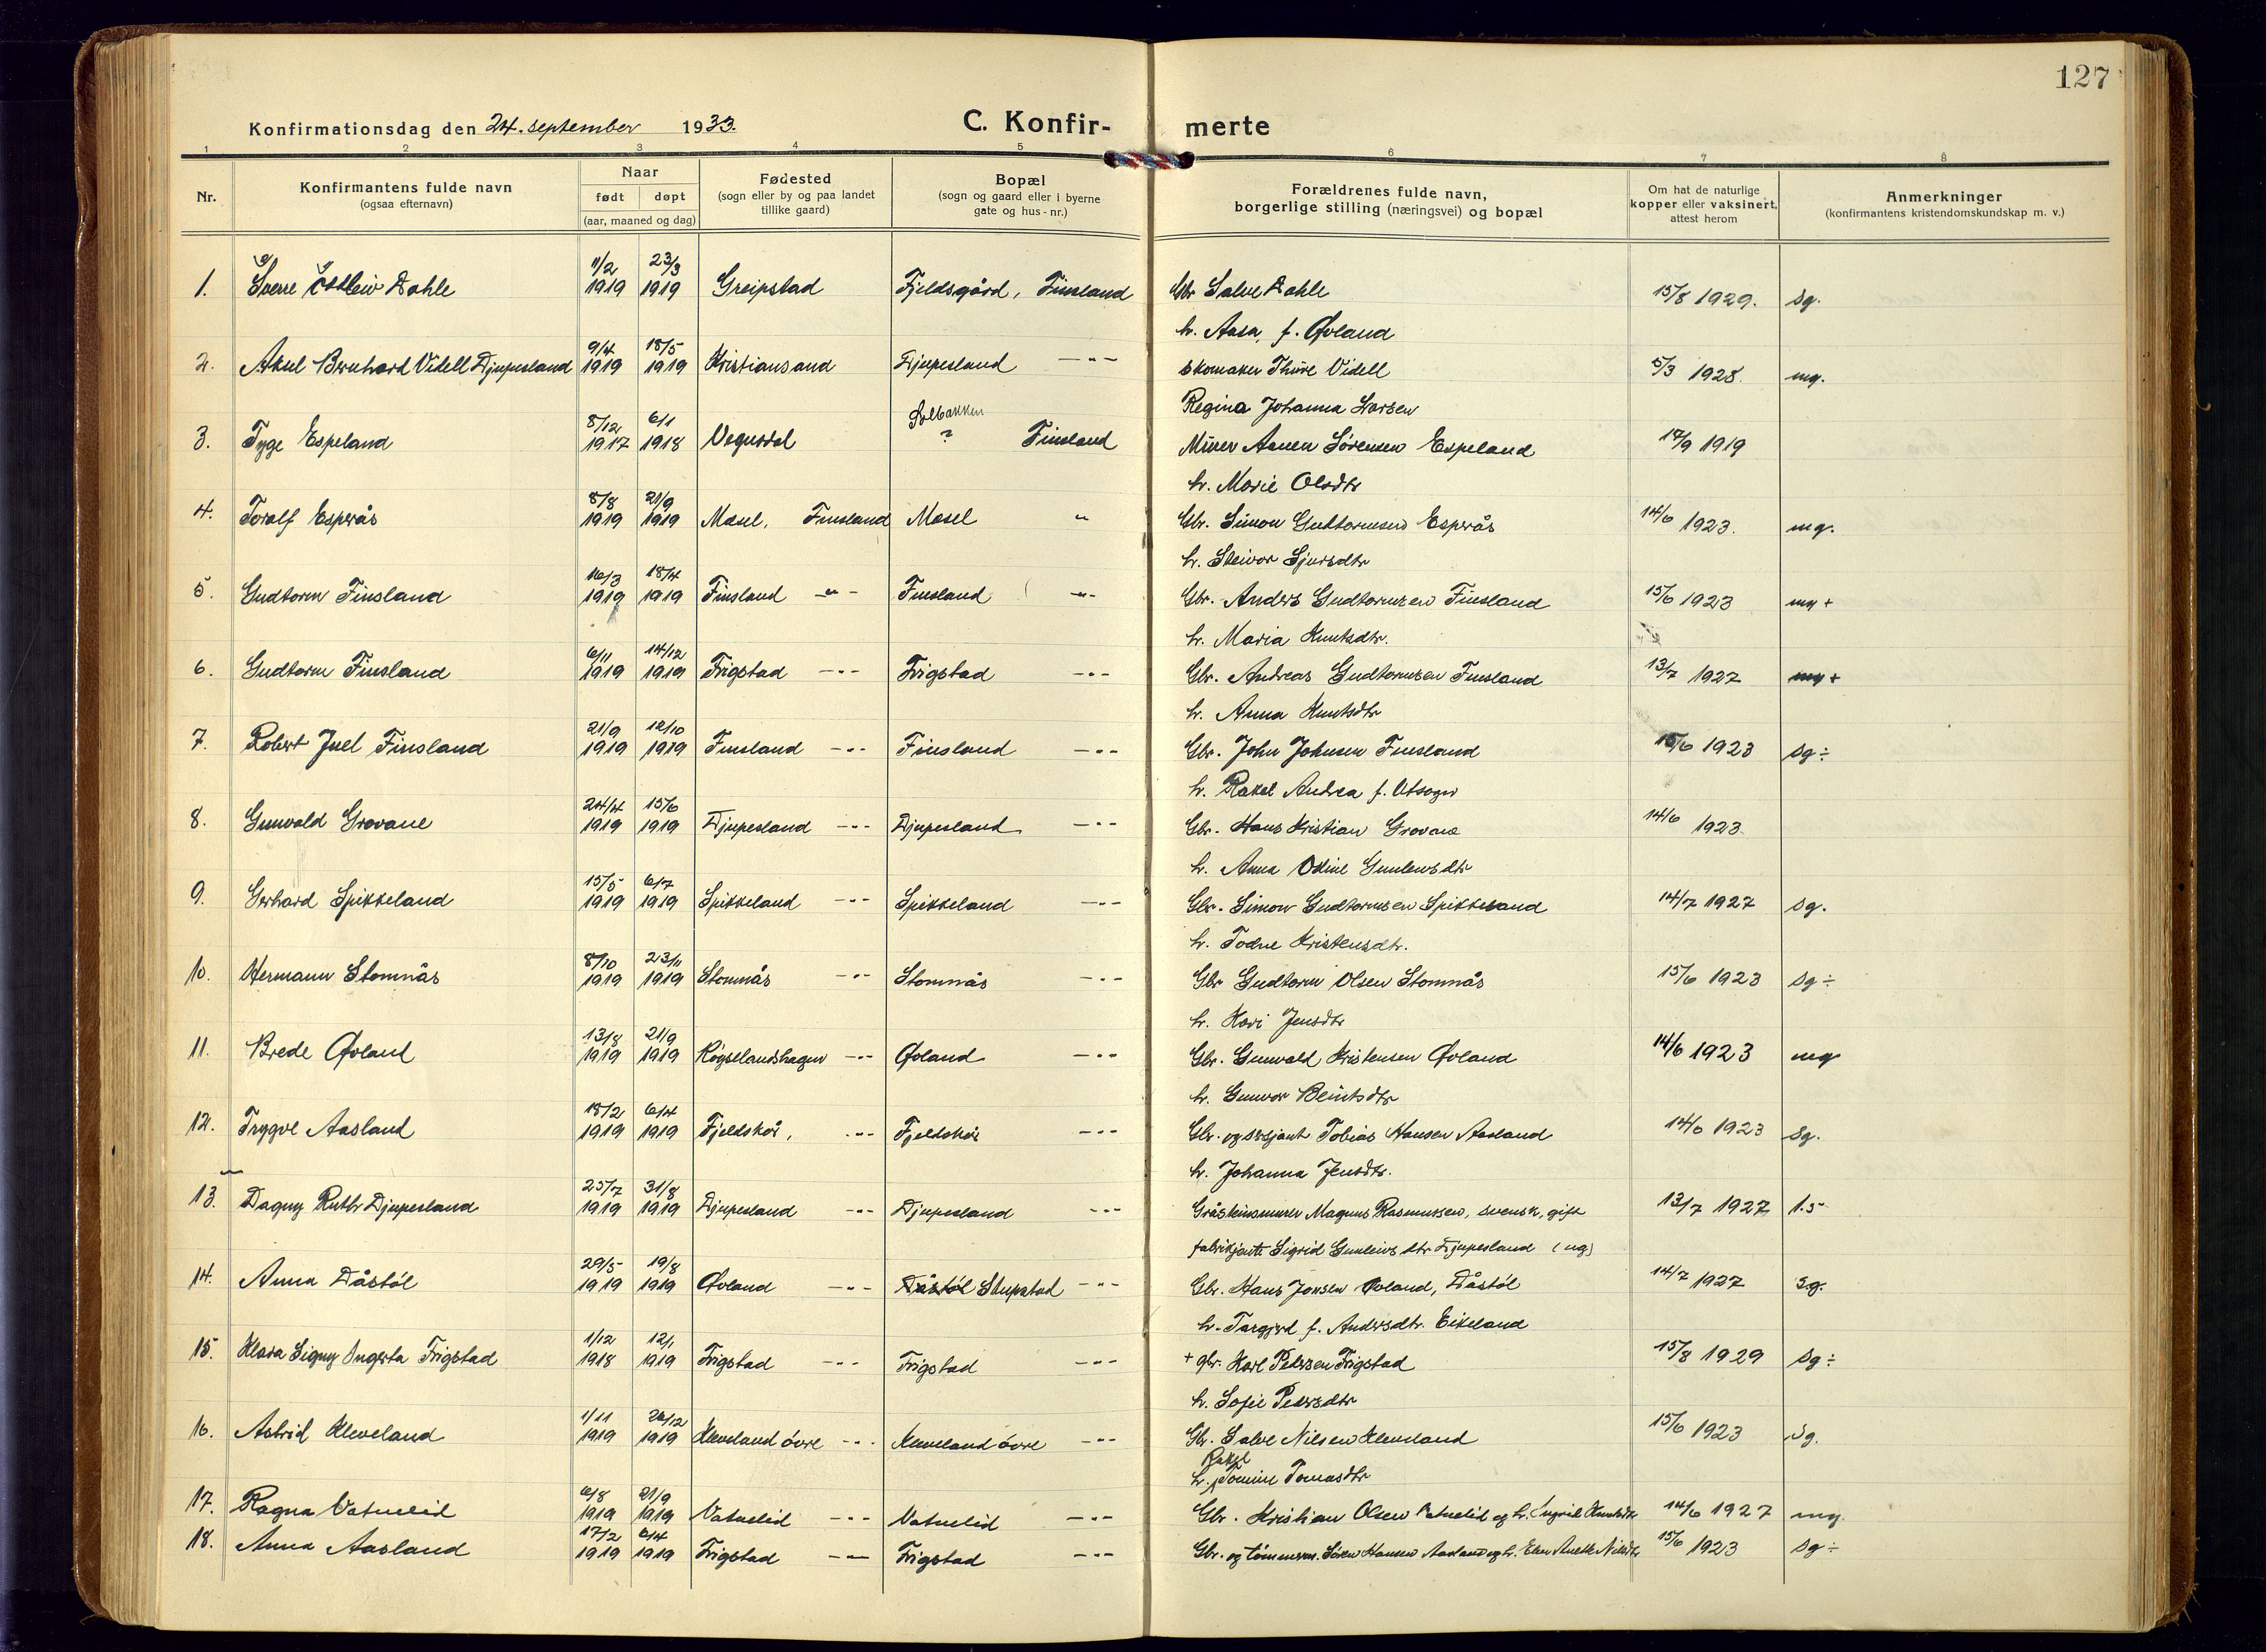 127
Konfirmationsdag den 24. september 1933.
C. Konfir- merte
1 2 3 4 5 6 7 8
Nr.
Konfirmantens fulde navn
(ogsaa efternavn)
Naar
født døpt
(aar, maaned og dag)
Fødested
(sogn eller by og paa landet
tillike gaard)
Bopæl
(sogn og gaard eller i byerne
gate og hus-nr.)
Forældrenes fulde navn,
borgerlige stilling (næringsvei) og bopæl
Om hat de naturlige
kopper eller vaksinert,
attest herom
Anmerkninger
(konfirmantens kristendomskundskap m. v.)
11/2 23/3
1. Sverre Dahle 1919 1919 Greipstad Fjeldsgård, Finsland Gbr Salve Dahle 15/8 1929. sg.
h. Aasa, f. Øvland
9/4 18/5
2. Aksel Bernhard Videll Djupesland 1919 1919 Kristiansand Djupesland —"— skomaker Thure Videll 5/3 1928. mg.
Regina Johanna Larsen
8/12 6/1 Solbakken
3. Tyge Espeland 1917 1918 Vegusdal ? Finsland Murer Aanen Sørensen Espeland 17/9 1919
h. Marie Olsdtr
8/8 21/9
4. Toralf Esperås 1919 1919 Mosel, Finsland Mosel " Gbr. Simon Gudtormsen Esperås 14/6 1923. mg.
h. Steivor Sjursdtr
16/3 18/4
5. Gudtorm Finsland 1919 1919 Finsland —"— Finsland —"— Gbr. Anders Gudtormsen Finsland 15/6 1923 mg +
h. Maria Knutsdtr.
6/11 14/12
6. Gudtorm Finsland 1919 1919 Frigstad —"— Frigstad —"— Gbr. Andreas Gudtormsen Finsland 13/7 1927 mg +
h. Anna Knutsdtr
21/9 12/10
7. Robert Juel Finsland 1919 1919 Finsland —"— Finsland —"— Gbr. John Johnsen Finsland 15/6 1923 sg ÷
h. Rakel Andrea f. Utsogn
24/4 15/6
8. Gunvald Grovane 1919 1919 Djupesland —"— Djupesland —"— Gbr. Hans Kristian Grovane 14/6 1923
h. Anna Odine Gunleivsdtr
15/5 6/7
9. Gerhard Spikkeland 1919 1919 Spikkeland —"— Spikkeland —"— Gbr. Simon Gudtormsen Spikkeland 14/7 1927 sg.
h. Todne Kristensdtr.
8/10 23/11
10. Hermann Stomnås 1919 1919 Stomnås —"— Stomnås —"— Gbr Gudtorm Olsen Stomnås 15/6 1923 sg ÷
h. Kari Jensdtr
13/8 21/9
11. Brede Øvland 1919 1919 Røyselandshagen —"— Øvland —"— Gbr. Gunvald Kristensen Øvland 14/6 1923 mg
h. Gunvor Beintsdtr
18/2 6/4
12. Trygve Aasland 1919 1919 Fjeldskår, —"— Fjeldskår —"— Gbr. og sersjant Tobias Hansen Aasland 14/6 1923 sg.
h. Johanna Jensdtr.
25/7 31/8
13. Dagny Ruth Djupesland 1919 1919 Djupesland —"— Djupesland —"— Gråsteinsmurer Magnus Rasmussen, svensk, gift 13/7 1927 1.5
fabrikjente Sigrid Gunleivsdtr Djupesland (ug)
29/5 19/8
14. Anna Dåstøl 1919 1919 Øvland —"— Dåstøl Stupstad —"— Gbr. Hans Jonsen Øvland, Dåstøl 14/7 1927 sg.
h. Targjerd f. Andersdtr. Eikeland
1/12 12/1
15. Klara Signy Ingerta Frigstad 1918 1919 Frigstad —"— Frigstad —"— + gbr. Karl Pedersen Frigstad 15/8 1929 sg ÷
h. Sofie Pedersdtr
1/11 26/12
16. Astrid Kleveland 1919 1919 Kleveland øvre —"— Kleveland øvre —"— Gbr. Salve Nilsen Kleveland 15/6 1923 sg.
Rakel
h. Tomine Tomasdtr
6/8 21/9
17. Ragna Vatnelid 1919 1919 Vatnelid —"— Vatnelid —"— Gbr. Kristian Olsen Vatnelid og h. Ingrid Knutsdtr 14/6 1927 mg.
17/2 6/4
18. Anna Aasland 1919 1919 Frigstad —"— Frigstad —"— Gbr. og tømmerm. Søren Hansen Aasland og h. Elen Anette Nilsdtr 15/6 1923 sg ÷